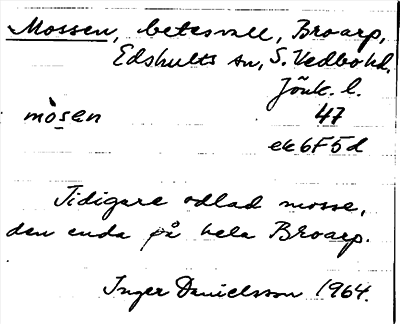 Mossen, betesvall, Broarp,
Edshults sn, S. Vedbo hd.
Jönk. l.
mòsen 47
ek6F5d
Tidigare odlad mosse,
den enda på hela Broarp.
Inger Danielsson 1964.